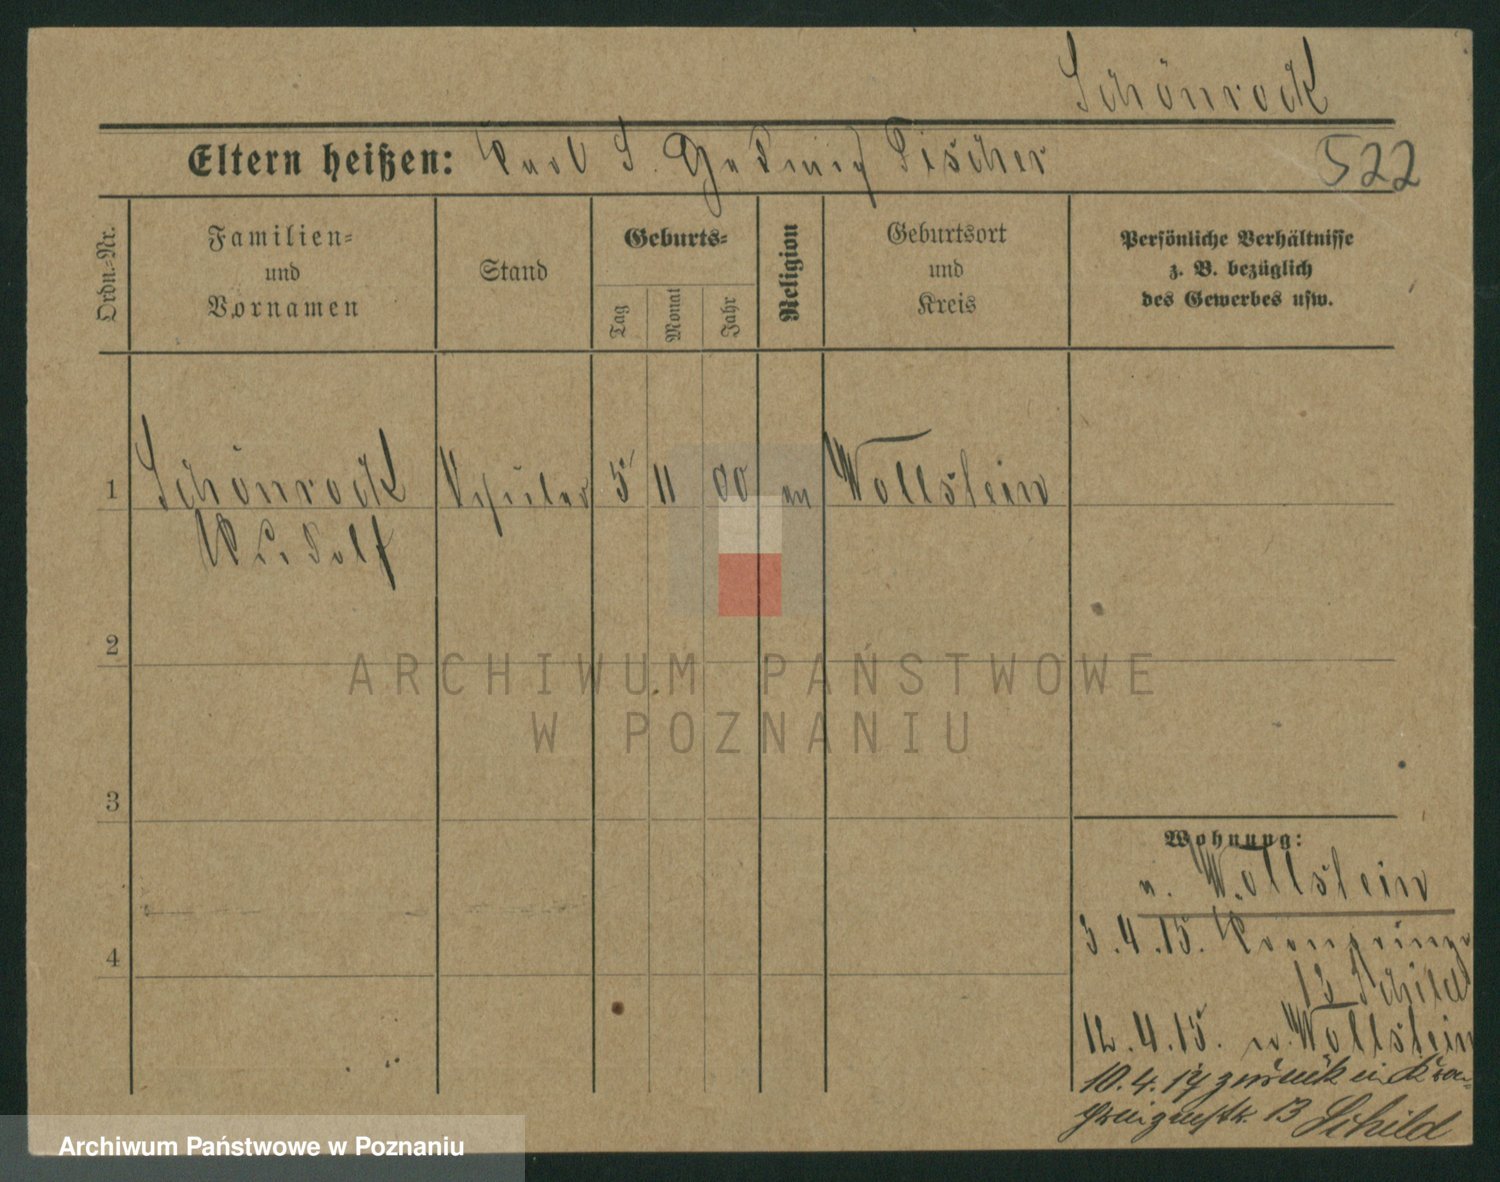 Schönrock
Eltern heißen: Karl S. Hedwig Fischer
522
Ordn.=Nr.
Familien=
und
Vornamen
Stand
Geburts=
Tag
Monat
Jahr
Religion
Geburtsort
und
Kreis
Persönliche Verhältnisse
z. B. bezüglich
des Gewerbes usw.
1
Schönrock
Rudolf
Schüler
5
11
00
ev
Wollstein
2
3
4
Wohnung:
v. Wollstein
3.4.15. Kronprinz
13 Schild
12.4.15. n. Wollstein
10.4.17 zurück in
13 Schild
ARCHIWUM PAŃSTWOWE
W POZNANIU
Archiwum Państwowe w Poznaniu